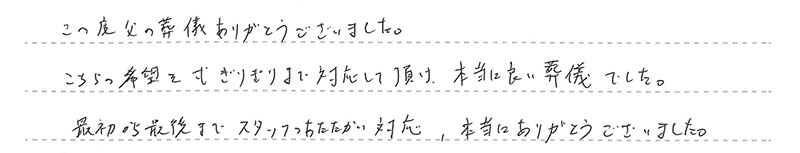 この度父の葬儀ありがとうございました。
こちらの希望をぎりぎりまで対応して頂け、本当に良い葬儀でした。
最初から最後までスタッフのあたたかい対応、本当にありがとうございました。